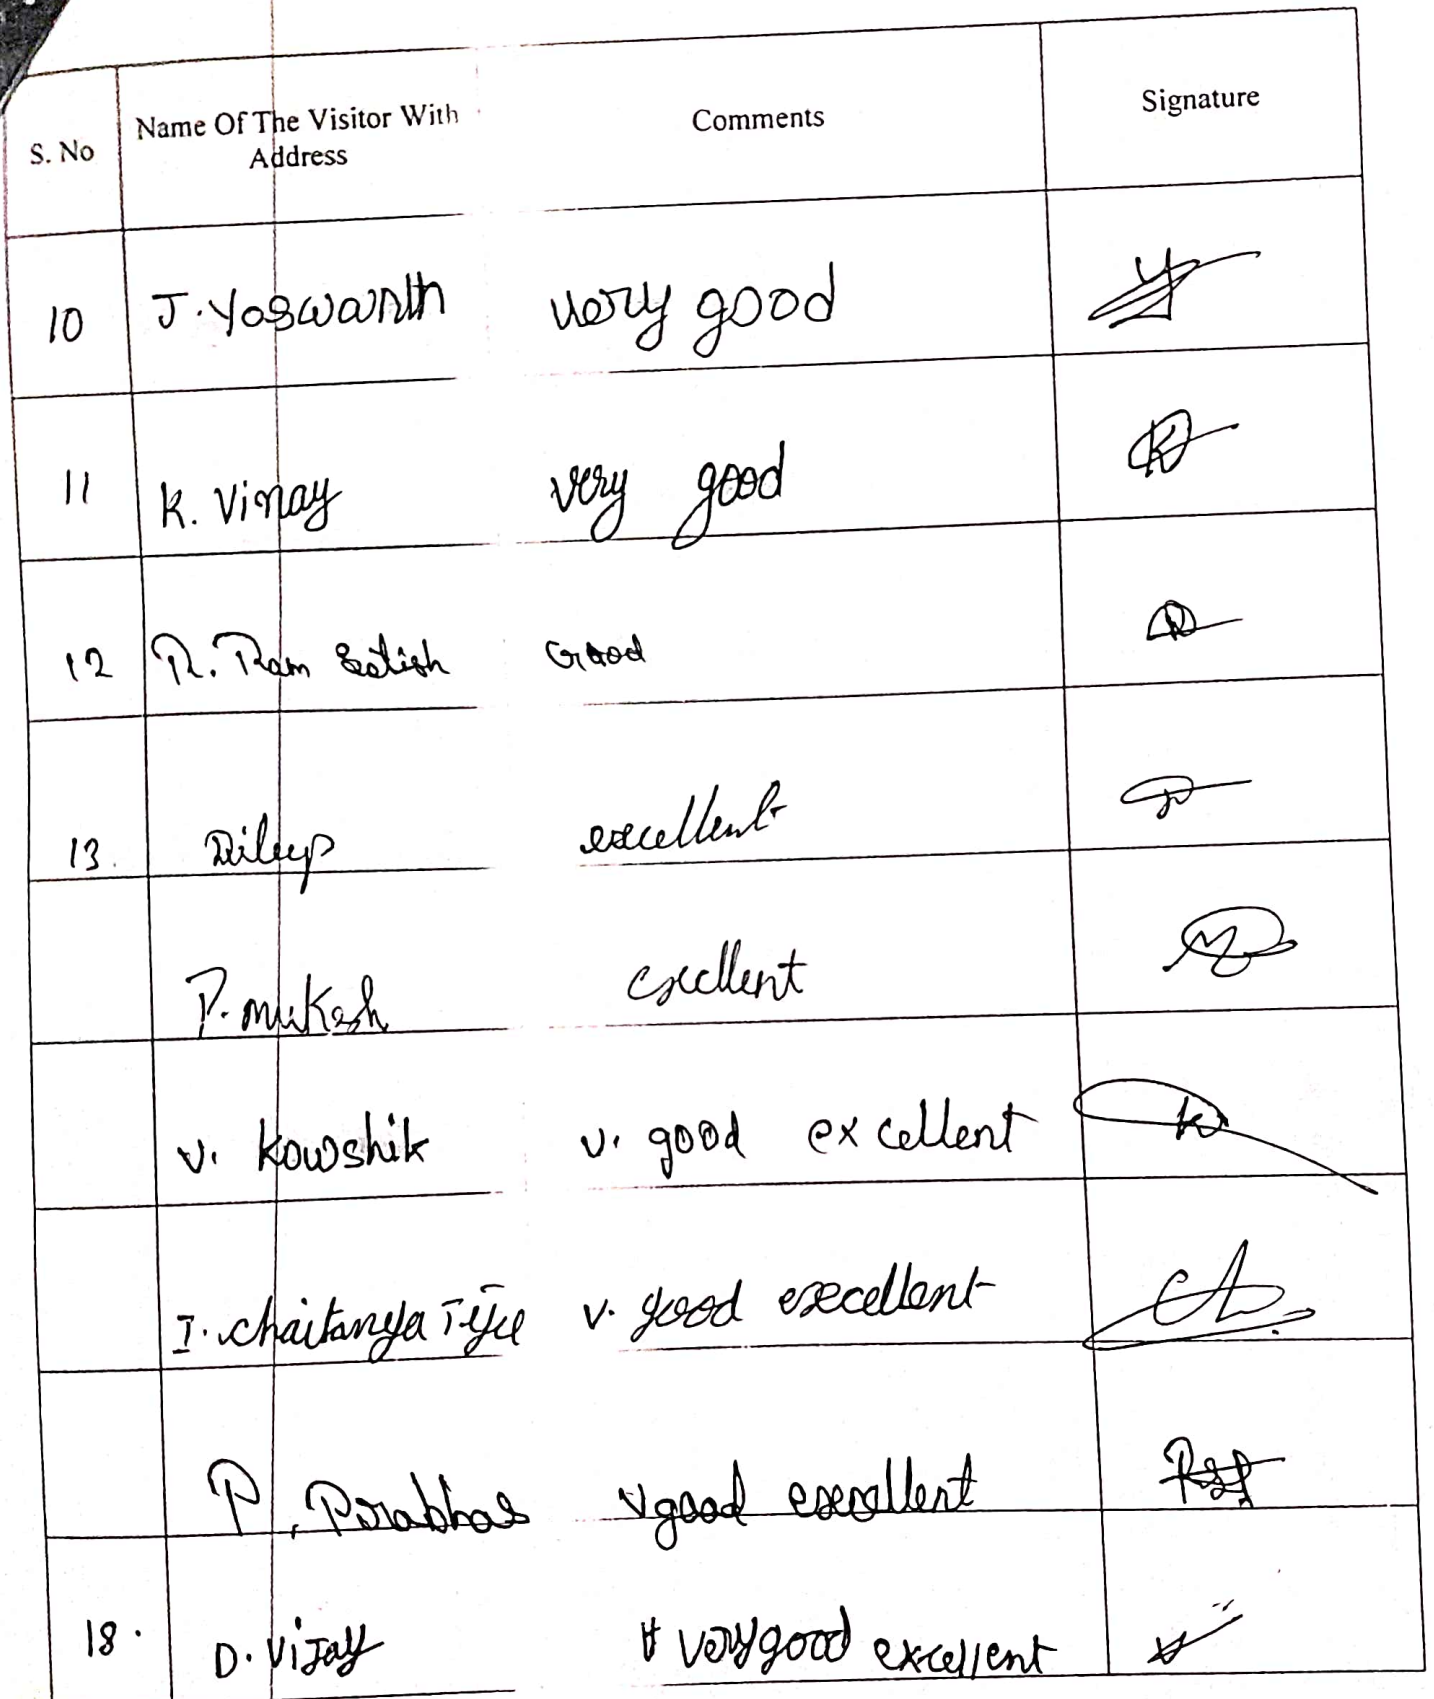 S. No Name Of The Visitor With Address Comments Signature
10 J. Yaswanth very good
11 K. Vinay very good
12 R. Ram Satish Good
13. Dilip excellent
P. mukesh excellent
V. Kowshik v. good excellent
I. Chaitanya Teju v. good excellent
P. Prabhas v good excellent
18. D. Vijay very good excellent